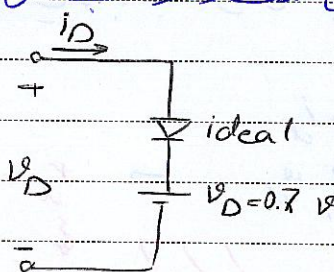 i_D
+
ideal
v_D
v_D=0.7 v
-